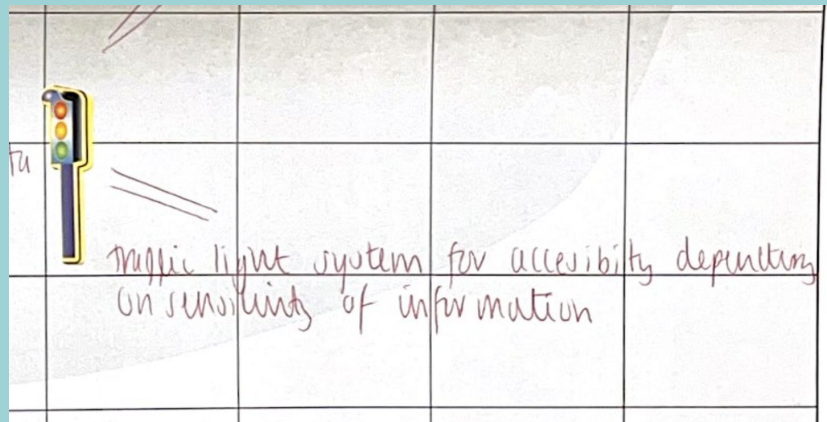 ta
traffic light system for accesibity depending
on sensitivity of information